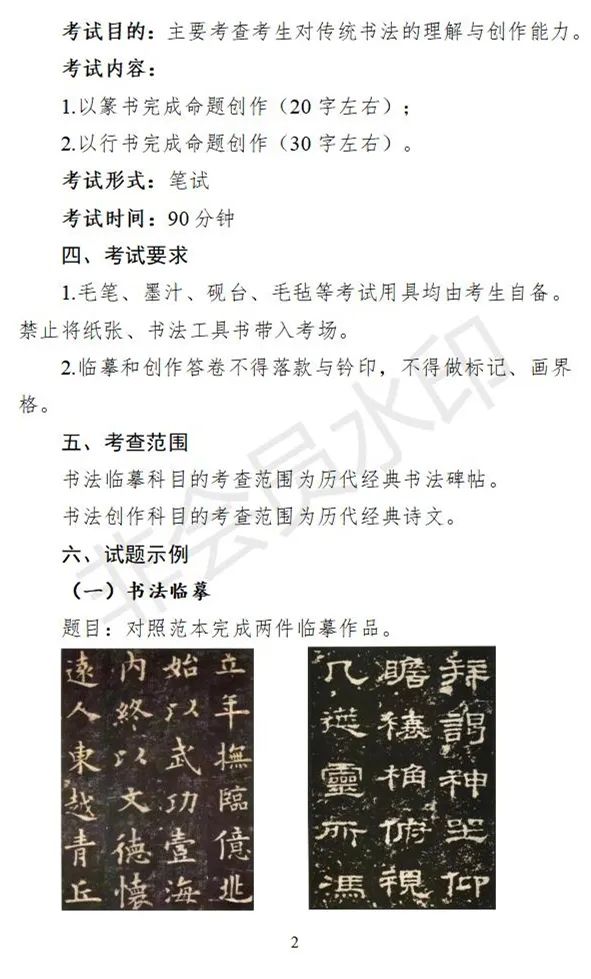 考试目的：主要考查考生对传统书法的理解与创作能力。
考试内容：
1.以篆书完成命题创作（20 字左右）；
2.以行书完成命题创作（30 字左右）。
考试形式：笔试
考试时间：90 分钟
四、考试要求
1.毛笔、墨汁、砚台、毛毡等考试用具均由考生自备。
禁止将纸张、书法工具书带入考场。
2.临摹和创作答卷不得落款与钤印，不得做标记、画界
格。
五、考查范围
书法临摹科目的考查范围为历代经典书法碑帖。
书法创作科目的考查范围为历代经典诗文。
六、试题示例
（一）书法临摹
题目：对照范本完成两件临摹作品。
立年撫臨億兆
始以武功壹海
内終以文德懷
遠人東越青丘
拜謁神坐仰
瞻榱桷俯視
几筵靈所馮
2
非会员水印